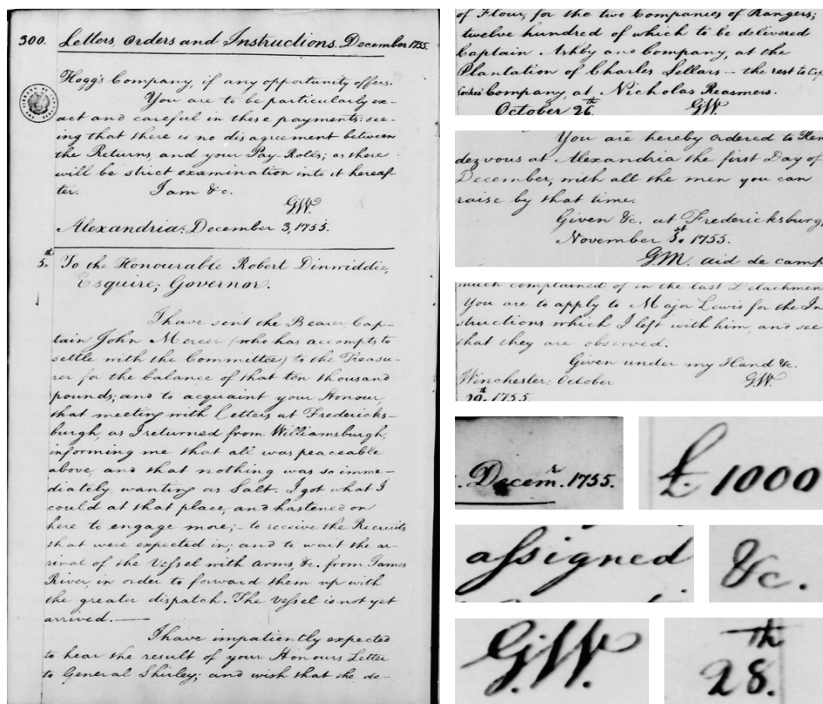 300. Letters, Orders and Instructions. December 1755.
Hogg's Company, if any opportunity offers.
You are to be particularly ex-
act and careful in these payments: see-
ing that there is no disagreement between
the Returns, and your Pay-Rolls; as there
will be strict examination into it hereaf-
ter. I am &c.
G.W.
Alexandria: December 3, 1755.
5.th To the Honourable Robert Dinwiddie,
Esquire; Governor.
I have sent the Bearer, Cap-
tain John Mercer (who has accompts to
settle with the Committee) to the Treasu-
rer for the balance of that ten thousand
pounds; and to acquaint your Honour,
that meeting with Letters at Fredericks-
burgh, as I returned from Williamsburgh,
informing me that all was peaceable
above, and that nothing was so imme-
diately wanting as Salt. I got what I
could at that place, and hastened on
here to engage more;- to receive the Recruits
that were expected in; and to wait the ar-
rival of the Vessel with arms, &c. from James
River, in order to forward them up with
the greater dispatch. The Vessel is not yet
arrived.
I have impatiently expected
to hear the result of your Honours Letter
to General Shirley; and wish that the de-
of Flour, for the two Companies of Rangers;
twelve hundred of which to be delivered
Captain Ashby and Company, at the
Plantation of Charles Sellars – the rest to Cap
Cockes' Company, at Nicholas Reasmers.
October 26.th G.W.
You are hereby ordered to Ren
dezvous at Alexandria the first Day of
December, with all the men you can
raise by that time.
Given &c. at Fredericksburg,
November 1755.
G.M. aid de camp
much complained of in the last Detachmen
You are to apply to Major Lewis for the In
structions which I left with him, and see
that they are observed.
Given under my Hand &c.
Winchester: October G.W.
29.th 1755
. Decem.r 1755.
£ 1000
assigned
&c.
G.W.
28.th